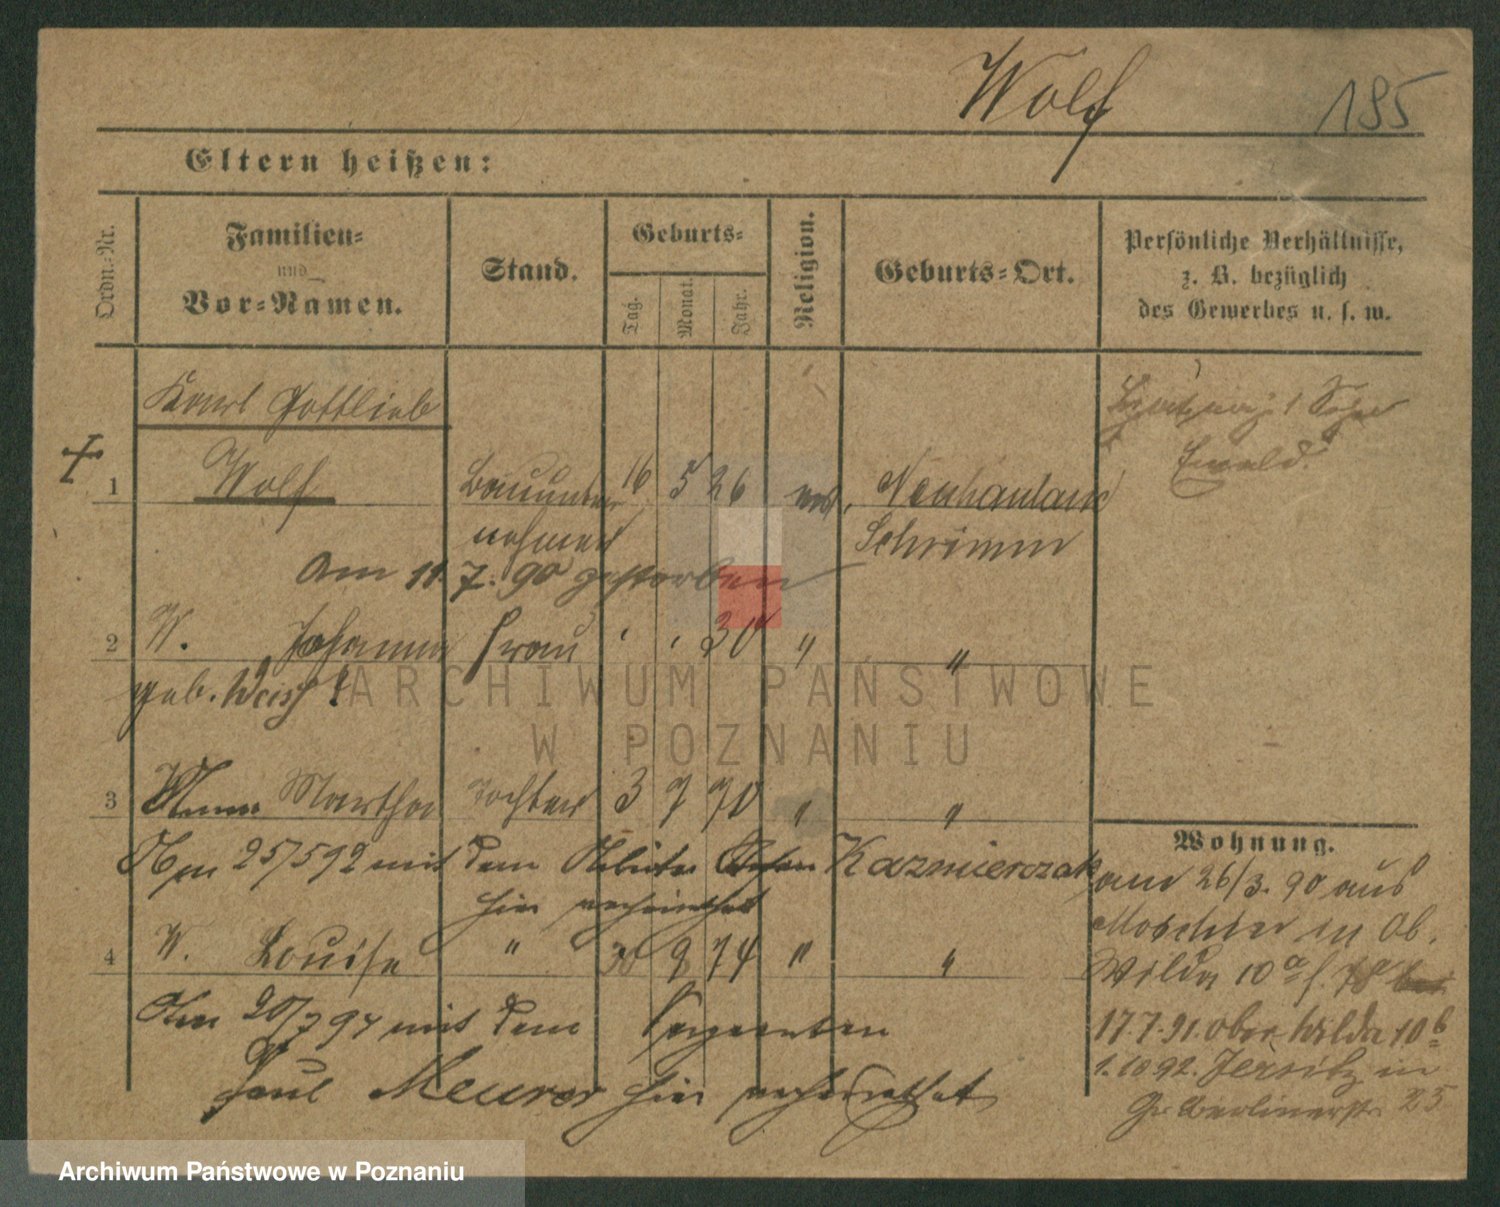 Wolf 185
Eltern heißen:
Ordn.-Nr.
Familien-
und
Vor-Namen.
Stand.
Geburts-
Tag.
Monat.
Jahr.
Religion.
Geburts-Ort.
Persönliche Verhältnisse,
z. B. bezüglich
des Gewerbes u. s. w.
Karl Gottlieb
1 Wolf Bauunter 16 5 26
nehmer Schrimm
Ewald.
Am 11. 7. 90 gestorben
2 W. Johanna Frau 30 "  "
geb. Weiss
3 Martha Tochter 3 7 70 " "
Am 25/5 92 mit dem Kazmierczak
hier verheirathet
4 W. Louise " 30 9 74 " "
Am 20/7 94 mit dem Sergeanten
Paul Meurer hier verheirathet
Wohnung.
am 26/3. 90 aus
Moschin in Ob.
Wilda 10a
17.7.91. Ober Wilda 10b
1.10 92. Jersitz in
Gr. Berlinerstr. 25
ARCHIWUM PAŃSTWOWE
W POZNANIU
Archiwum Państwowe w Poznaniu